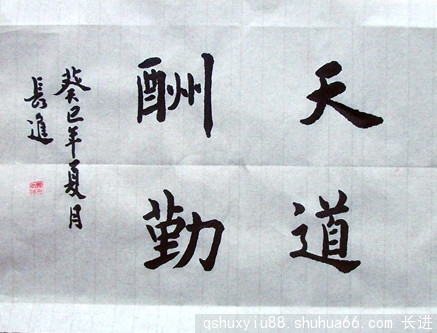 天道
酬勤
癸巳年夏月
長進
qshuxyiu88.shuhua66.com 长进